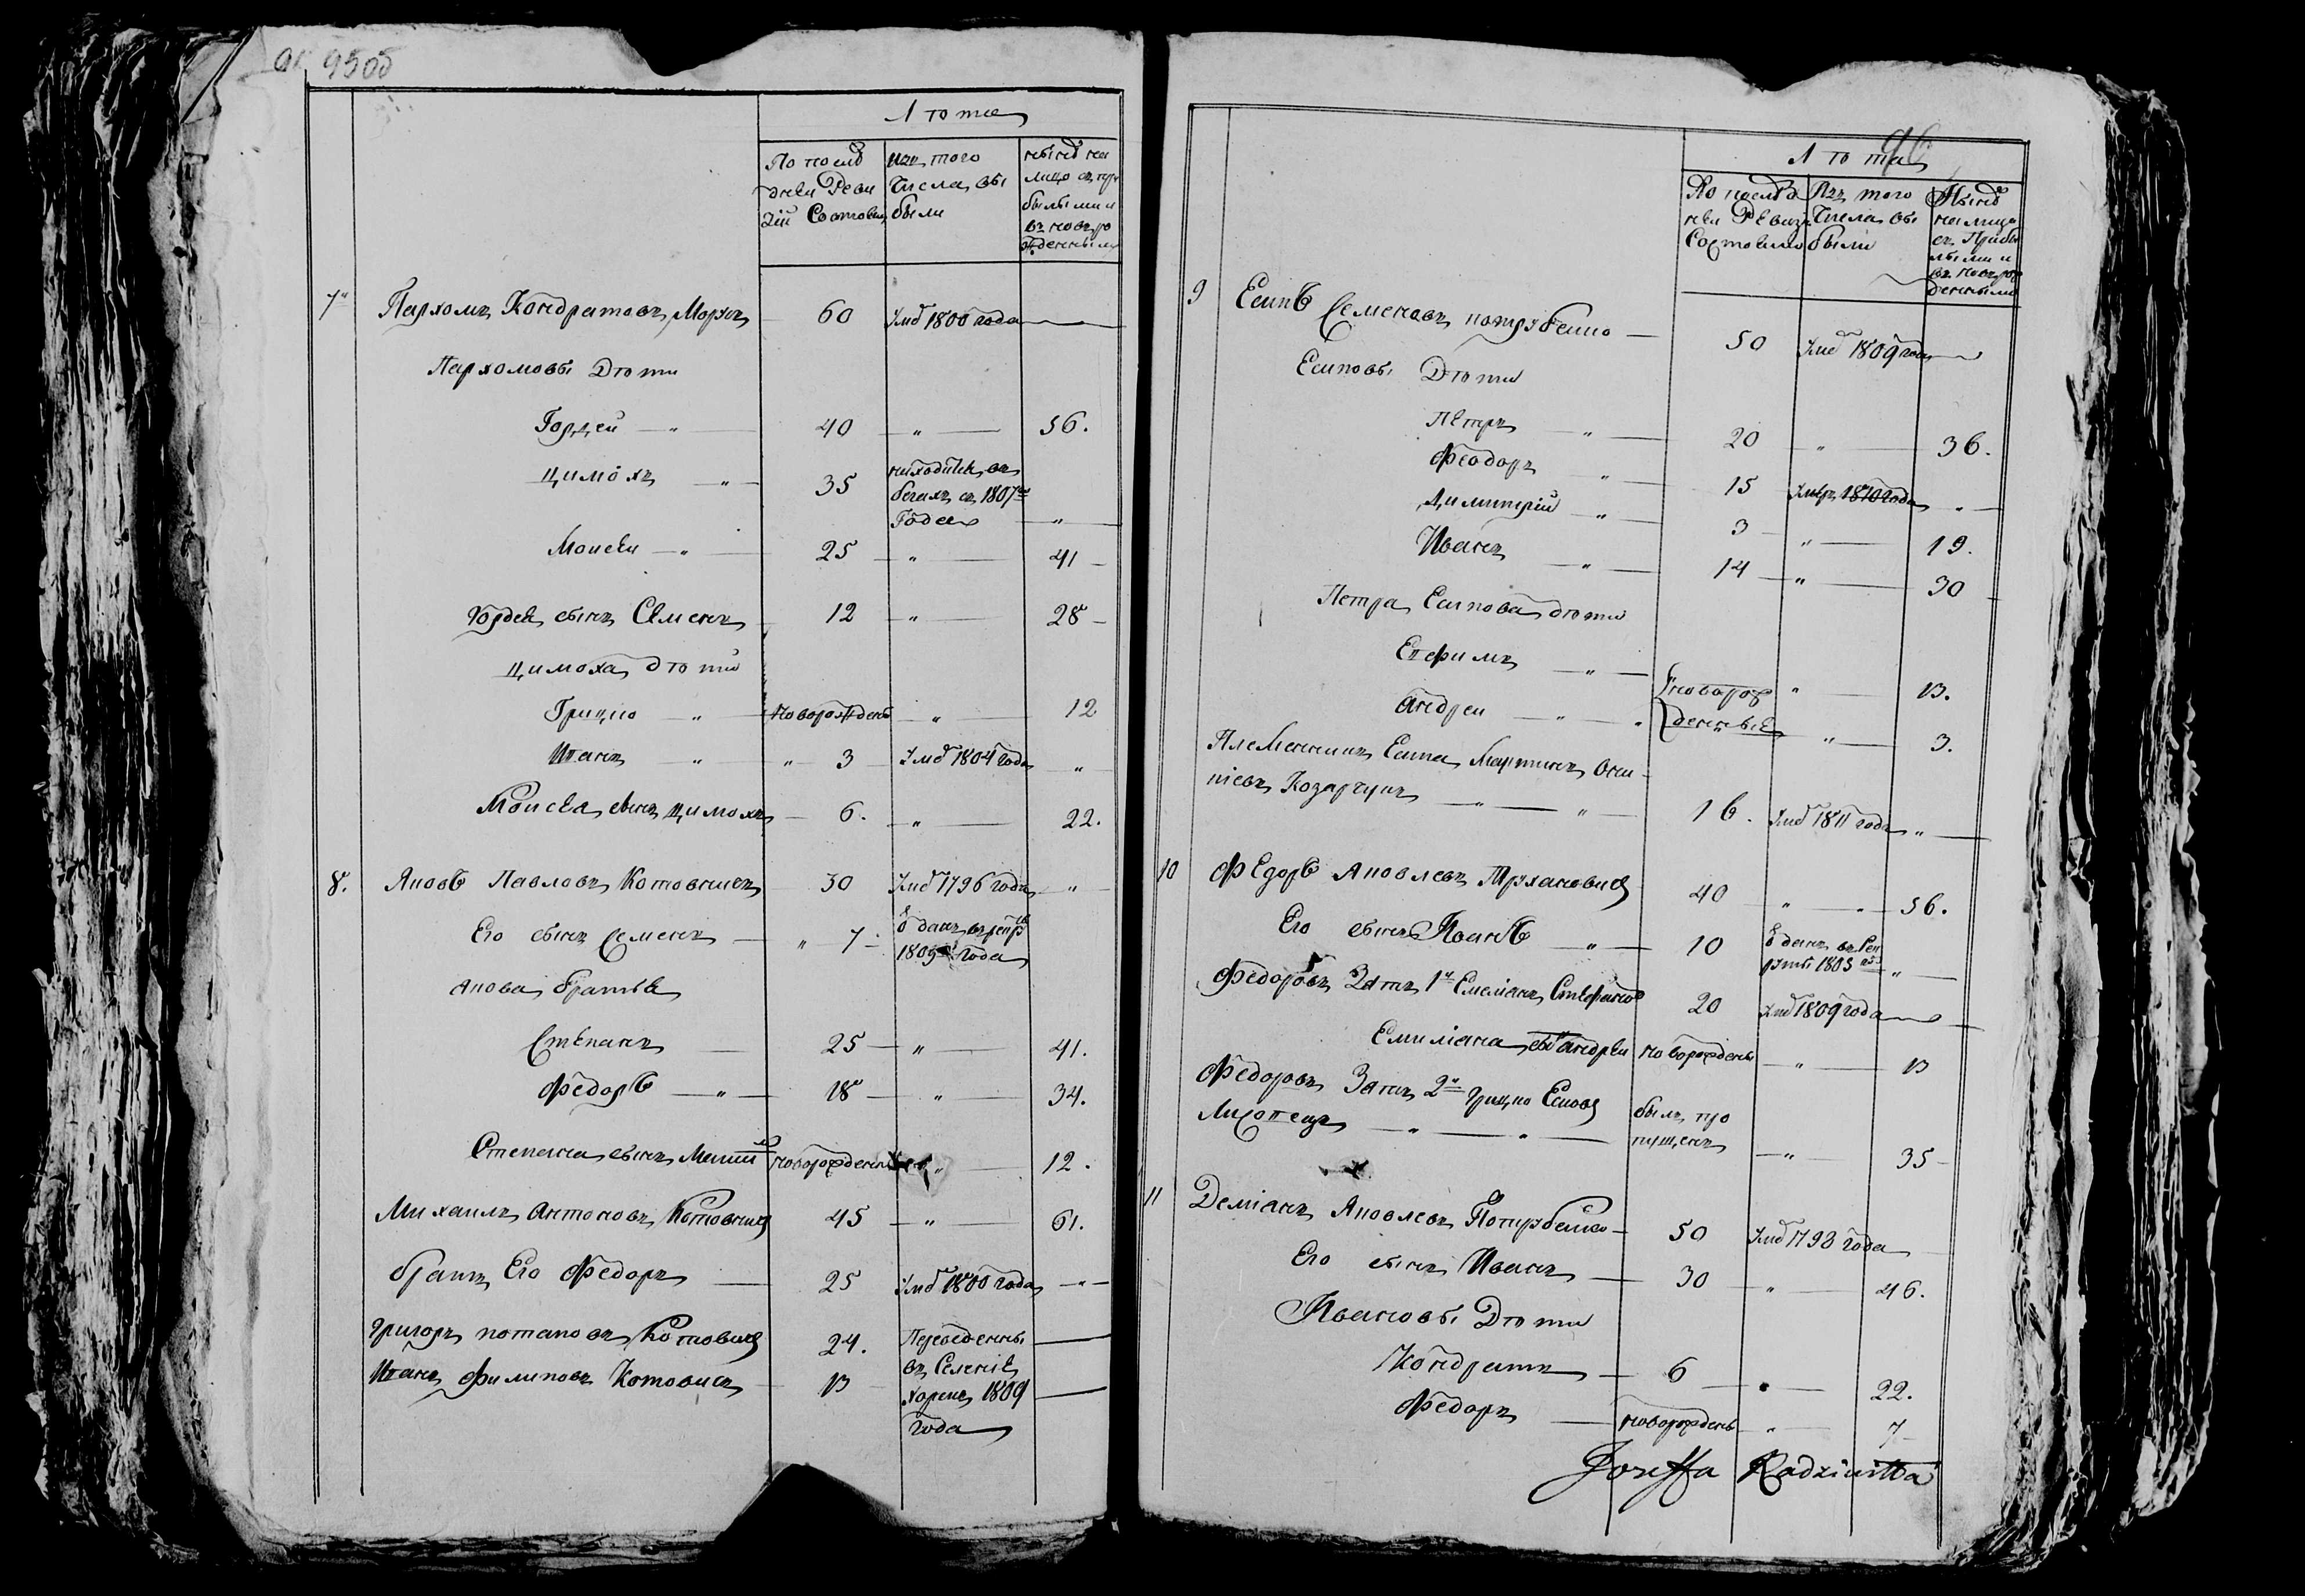 95об
Лѣта
По послѣ
дней Реви
зіи Состояли
изъ того
Числа вы
были
нынѣ на
лицо съ при
былыми и
въ новь ро
жденными
7 Пархомъ Кондратовъ 60 Умѣ 1800 года
Пархомовы Дѣти
Гордей 40 56.
Цимохъ 35 находится въ
бегахъ съ 1807го
Года
Моисей 25 41
Гордея сынъ Семенъ 12 28
Цимоха дѣти
Грицко новорожденъ 12
Иванъ 3 Умѣ 1804 года
Моисея сынъ Цимохъ 6. 22.
8. Яковъ Павловъ Котовичъ 30 Умѣ 1796 года
Его сынъ Семенъ 7 Отданъ въ рекр
1805 года
Якова братья
Степанъ 25 41.
Федоръ 18 34.
Степана сынъ новорожденъ 12.
Михаилъ Антоновъ Котовичъ 45 61.
братъ Его Федоръ 25 Умѣ 1800 года
Григоръ потаповъ Котовичъ 24. Переведенны
Иванъ Филиповъ Котовичъ 13 въ Селеніе
1809
года
96
Лѣта
По послѣд
ней Ревизіи
Состояли
Изъ того
Числа вы
были
Нынѣ
на лицо
съ Прибы
лыми и
въ новь рож
денными
9 Есипъ Семеновъ потрубейко 50 Умѣ 1809 года
Есиповы Дѣти
Петръ 20 36.
Феодоръ 15 Умеръ 1810 года
Димитрій 3 19.
Иванъ 14 30
Петра Есипова дѣти
Ефимъ новорож 13.
Андрей денные 3.
Племянникъ Есипа Мартинъ Оси
піевъ Козарчукъ 16. Умѣ 1811 года
10 Федоръ Яковлевъ Трухановичъ 40 56.
Его сынъ Иванъ 10 Отданъ въ Рек
руты 1805 го
Федоровъ Зять 1й Емеліанъ Стефанов 20 Умѣ 1809 года
Емиліана сынъ Андрей новорожденъ 13
Федоровъ Зять 2й Грицко Есипов былъ про
пущенъ 35
11 Деміанъ Яковлевъ Потрубейко 50 Умѣ 1798 года
Его сынъ Иванъ 30 46.
Ивановы Дѣти
Кондратъ 6 22.
Федоръ новорожденъ 7
Jozeffa